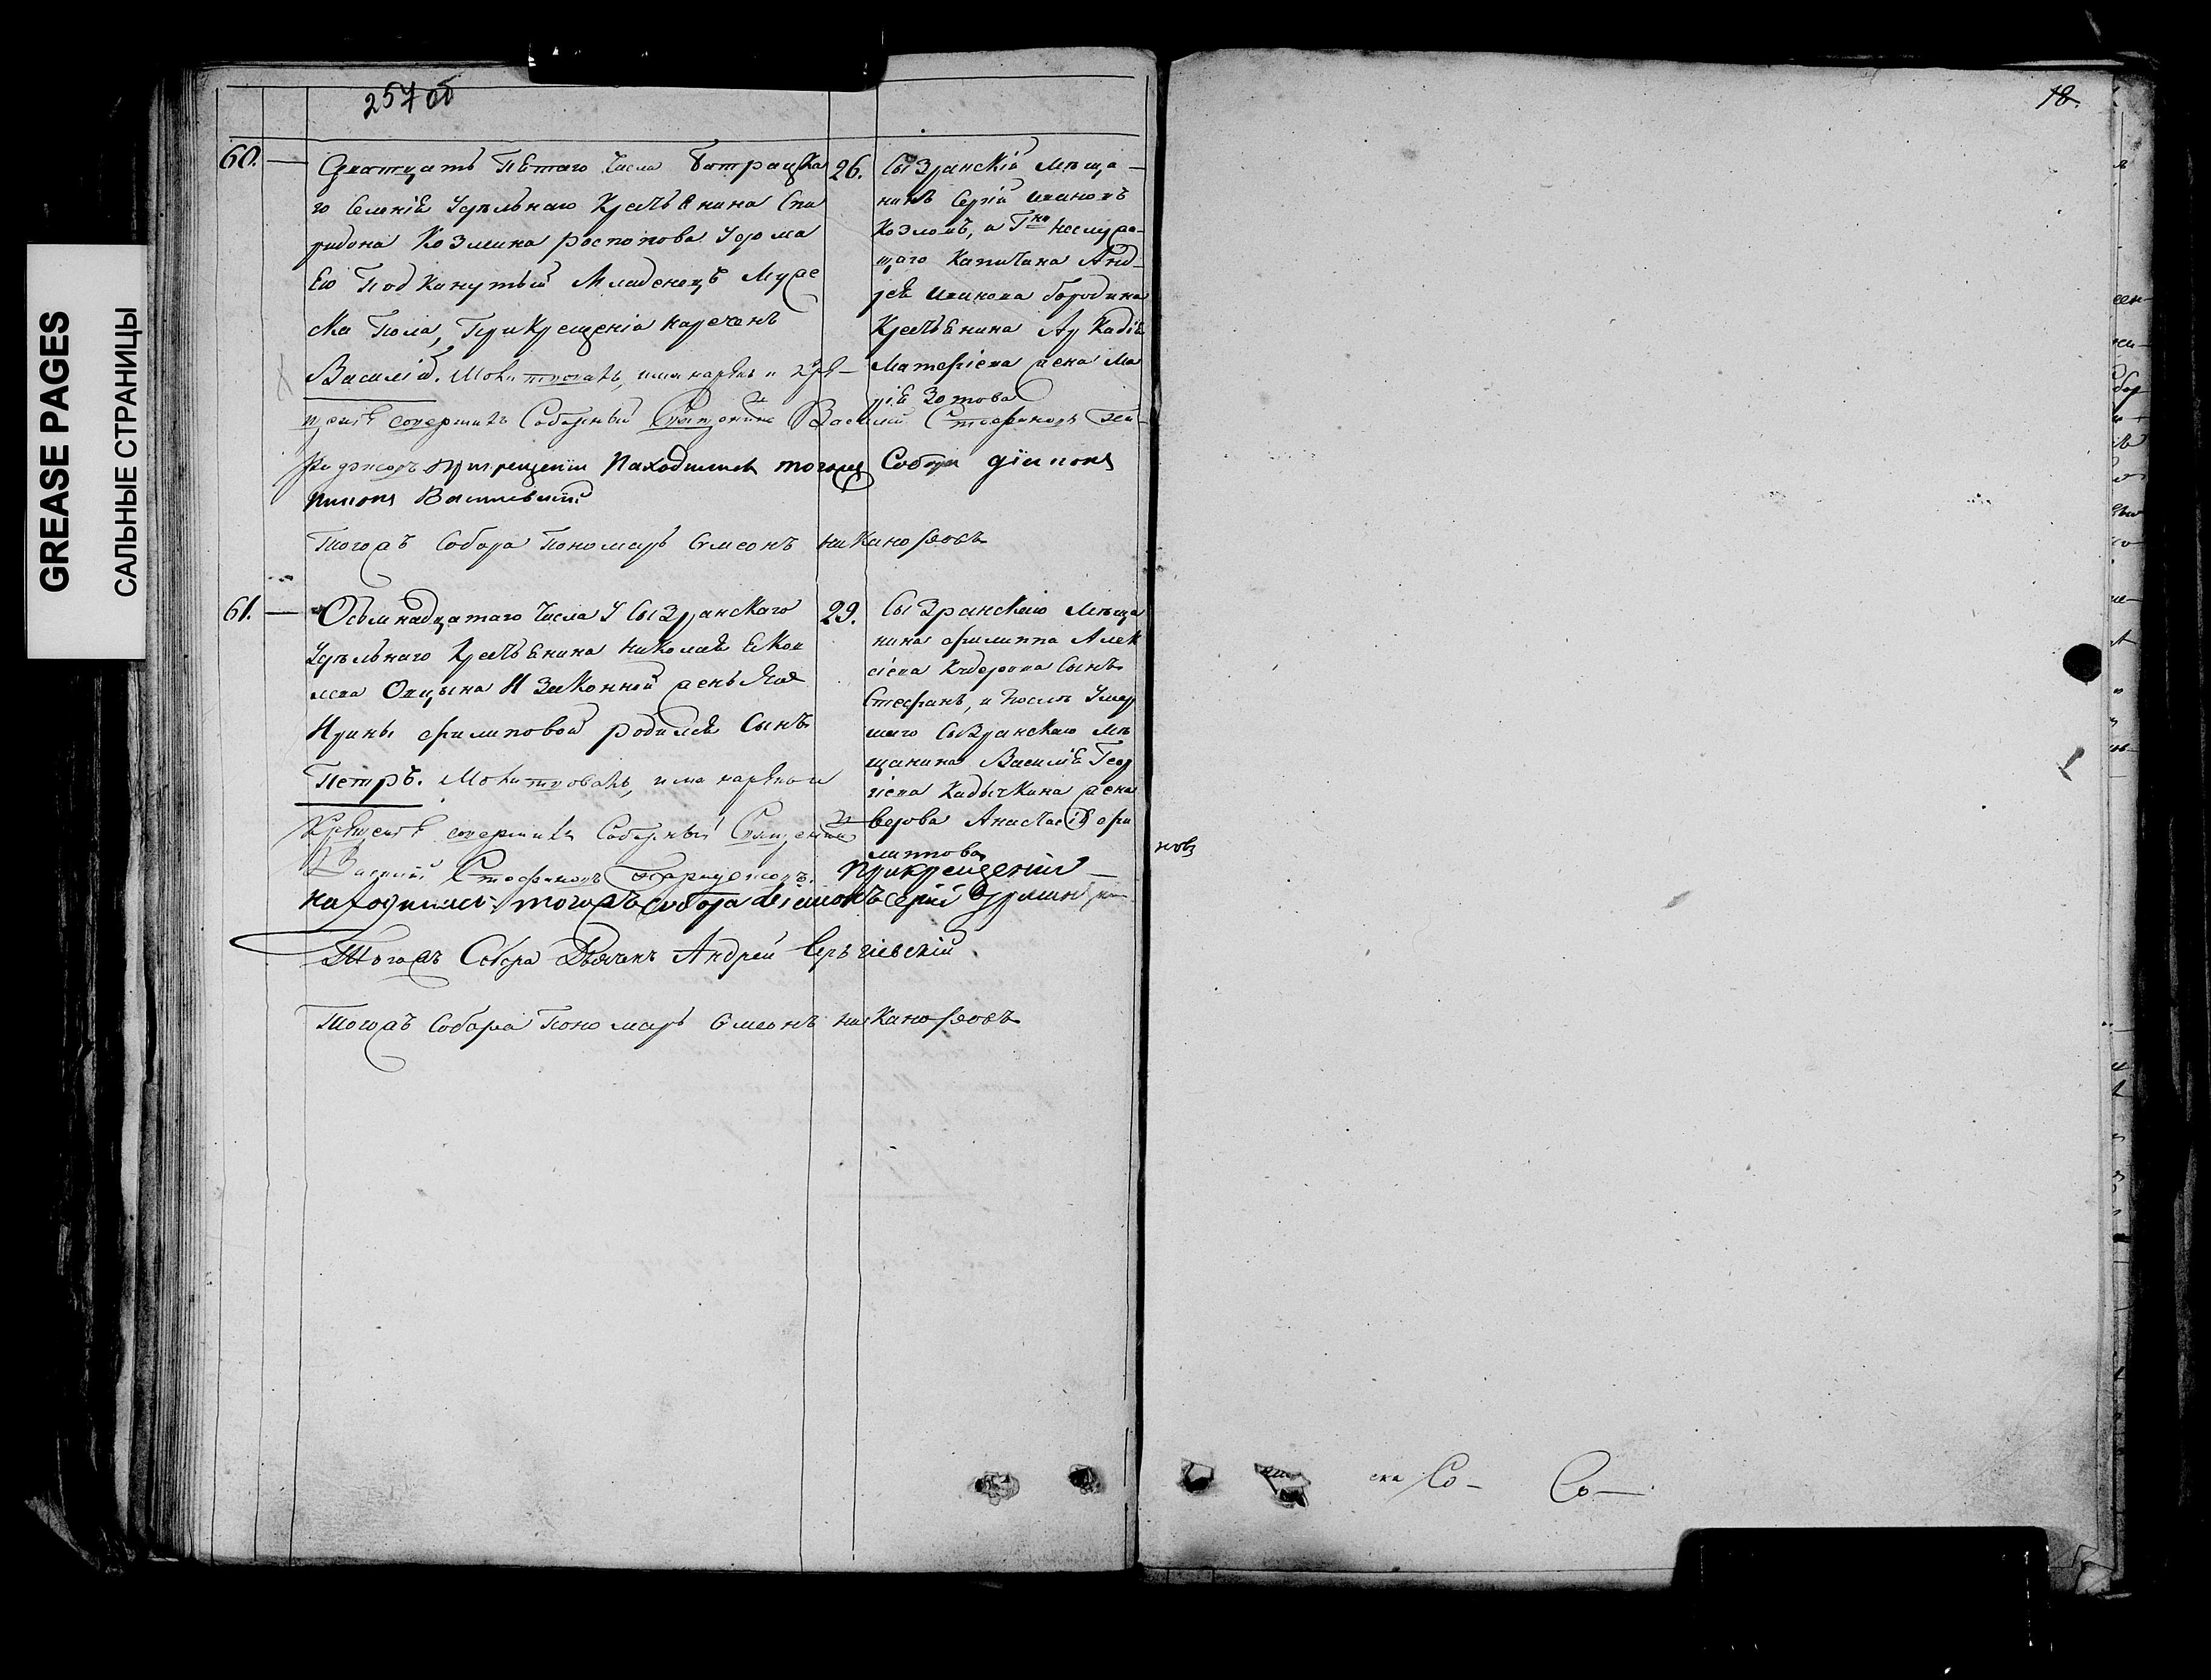 GREASE PAGES
САЛЬНЫЕ СТРАНИЦЫ
257 об
18.
60. — Дватцать Пѣтаго Числа Батрацка
го Селенія Удѣльнаго Крестьянина Спи
ридона Козмина роспопова Удома
Его Подкинутый Младенецъ Мужс
ка Пола, Прикрещеніи нареченъ
Василій. Молитвовалъ, имя нарѣкъ и Кре
щеніе совершилъ Соборный Священникъ Василій Стефановъ
прикрещеніи Находился тогожъ Собора діаконъ
Васильевскій
Тогожъ Собора Пономарь Симеонъ Никаноровъ
26. Сызранскій Мѣща
нинъ Сергій Ивановъ
Козловъ, и Гна Неслужа
щаго Капитана Анд
рея Иванова Бородина
Крестьянина Аркадія
Матвѣева жена Ма
рія Зотова
61. — Осьмнадцатаго Числа У Сызранскаго
Удѣльнаго Крестьянина Николая
И Законной жены Его
Ирины Филиповой родился Сынъ
Петръ. Молитвовалъ, имя нарѣкъ и
Крещеніе совершилъ Соборный Священникъ
Василій Стефановъ Прикрещеніи
находился тогожъ собора діаконъ Сергій
Тогожъ Собора Дьячекъ Андрей Сергіевскій
Тогожъ Собора Пономарь Симеонъ Никаноровъ
29. Сызранскаго Мѣща
нина Филиппа Алек
сіева Сынъ
Стефанъ, и Послѣ Умер
шаго Сызранскаго Мѣ
щанина Василія Геор
гіева Кадычкина жена
вдова Анастасія Фи
липпова
новъ
ска Со- Со-